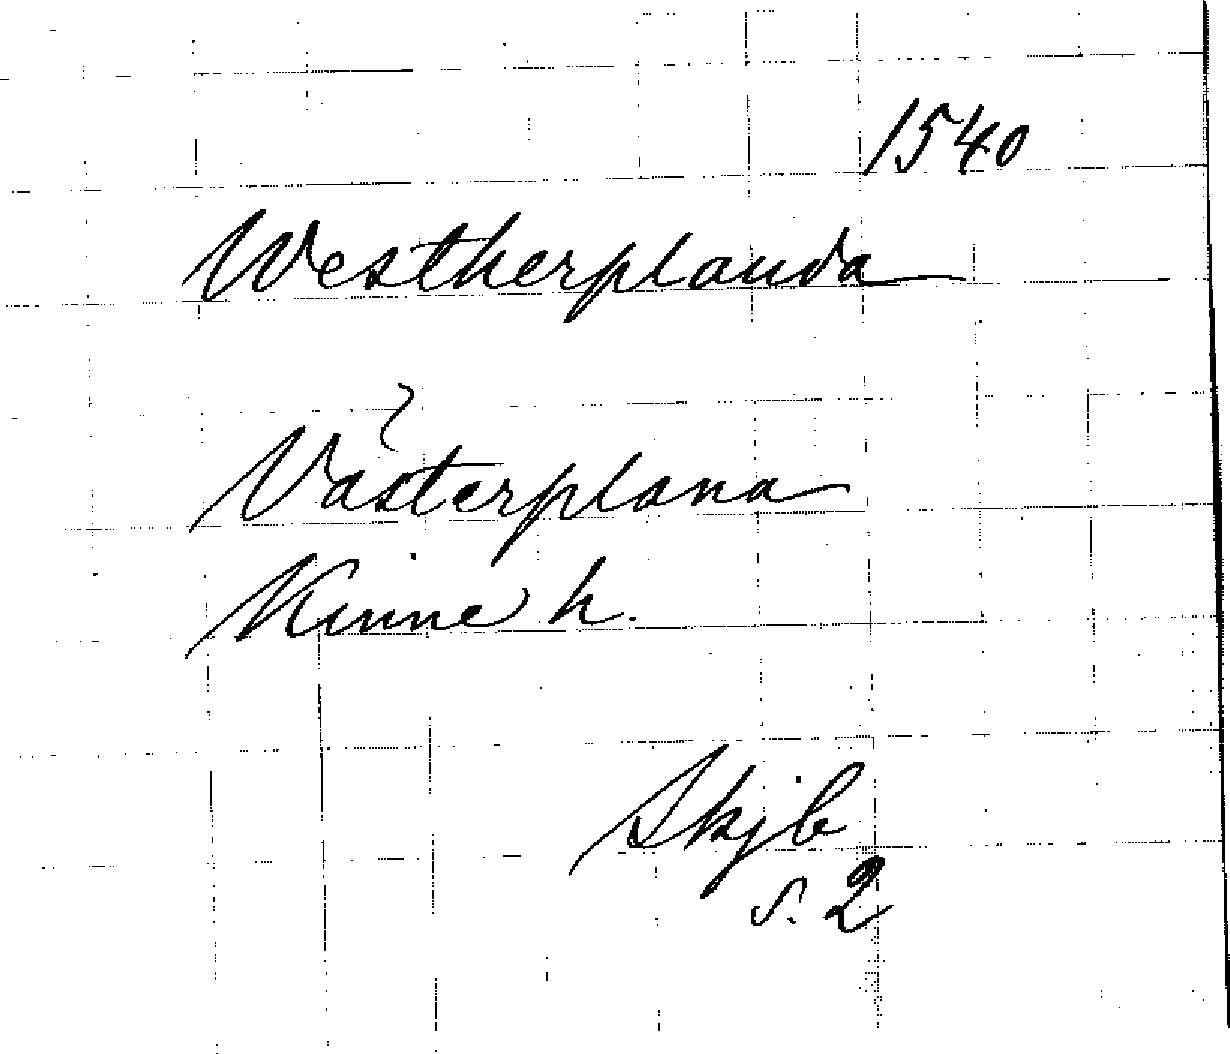 1540
Westherplauda
Västerplana
Kinne h.
Skjb
s. 2